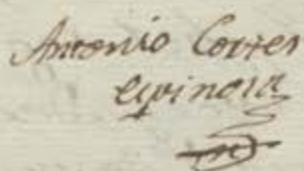 Antonio Cortes
espinosa